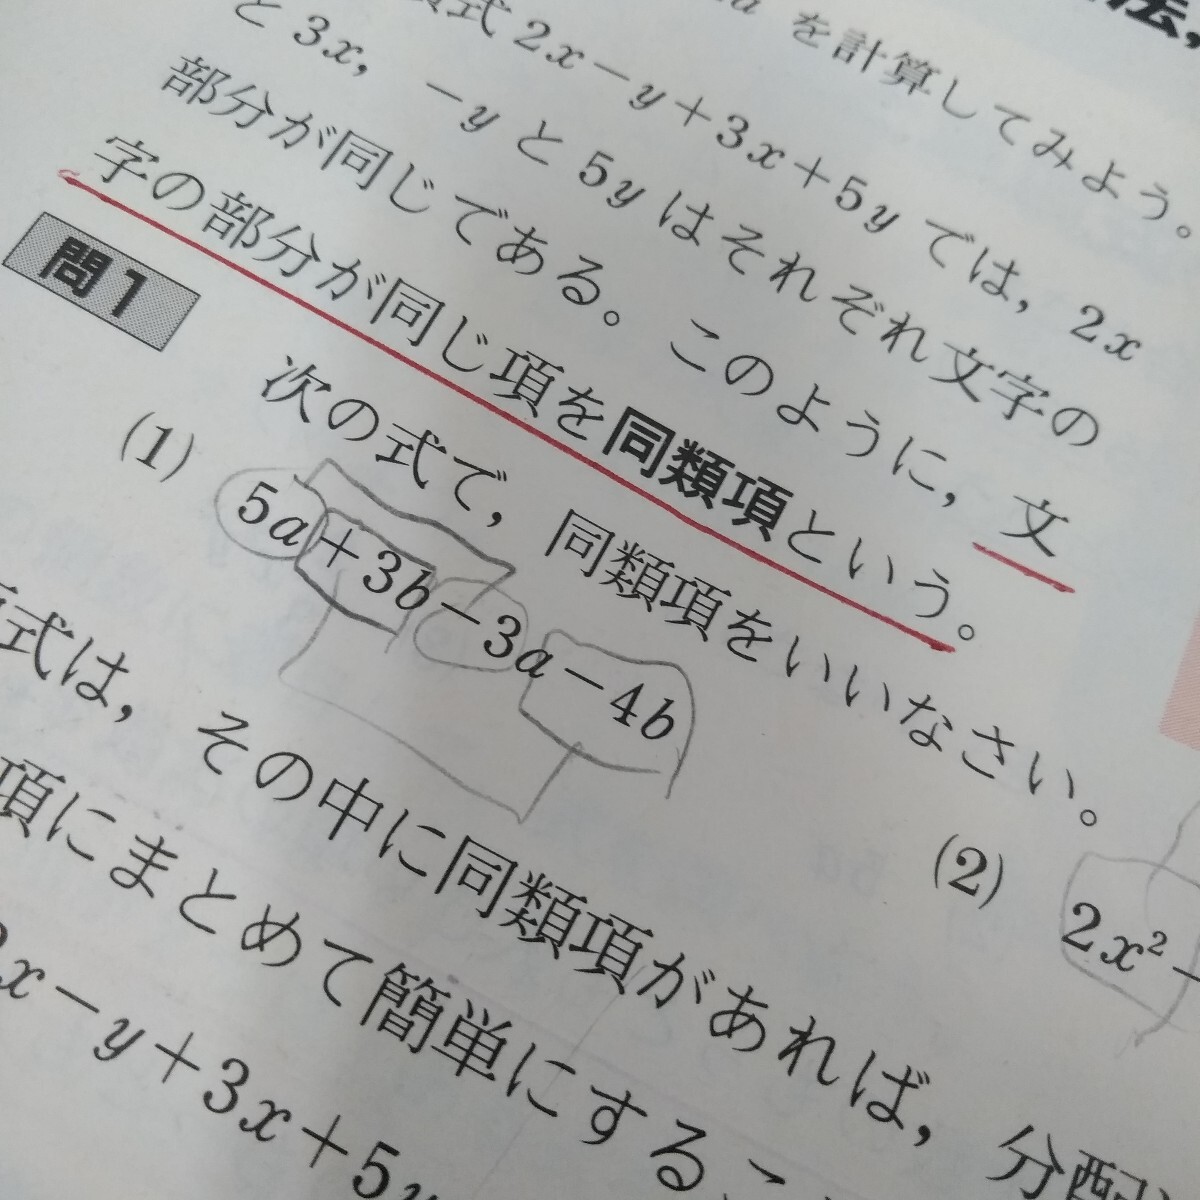 法,
を計算してみよう。
式 2x－y＋3x＋5y では，2x
と 3x，－y と 5y はそれぞれ文字の
部分が同じである。このように，文
字の部分が同じ項を同類項という。
問1
次の式で，同類項をいいなさい。
(1) 5a＋3b－3a－4b
(2) 2x²－
式は，その中に同類項があれば，分配
項にまとめて簡単にするこ
x－y＋3x＋5y